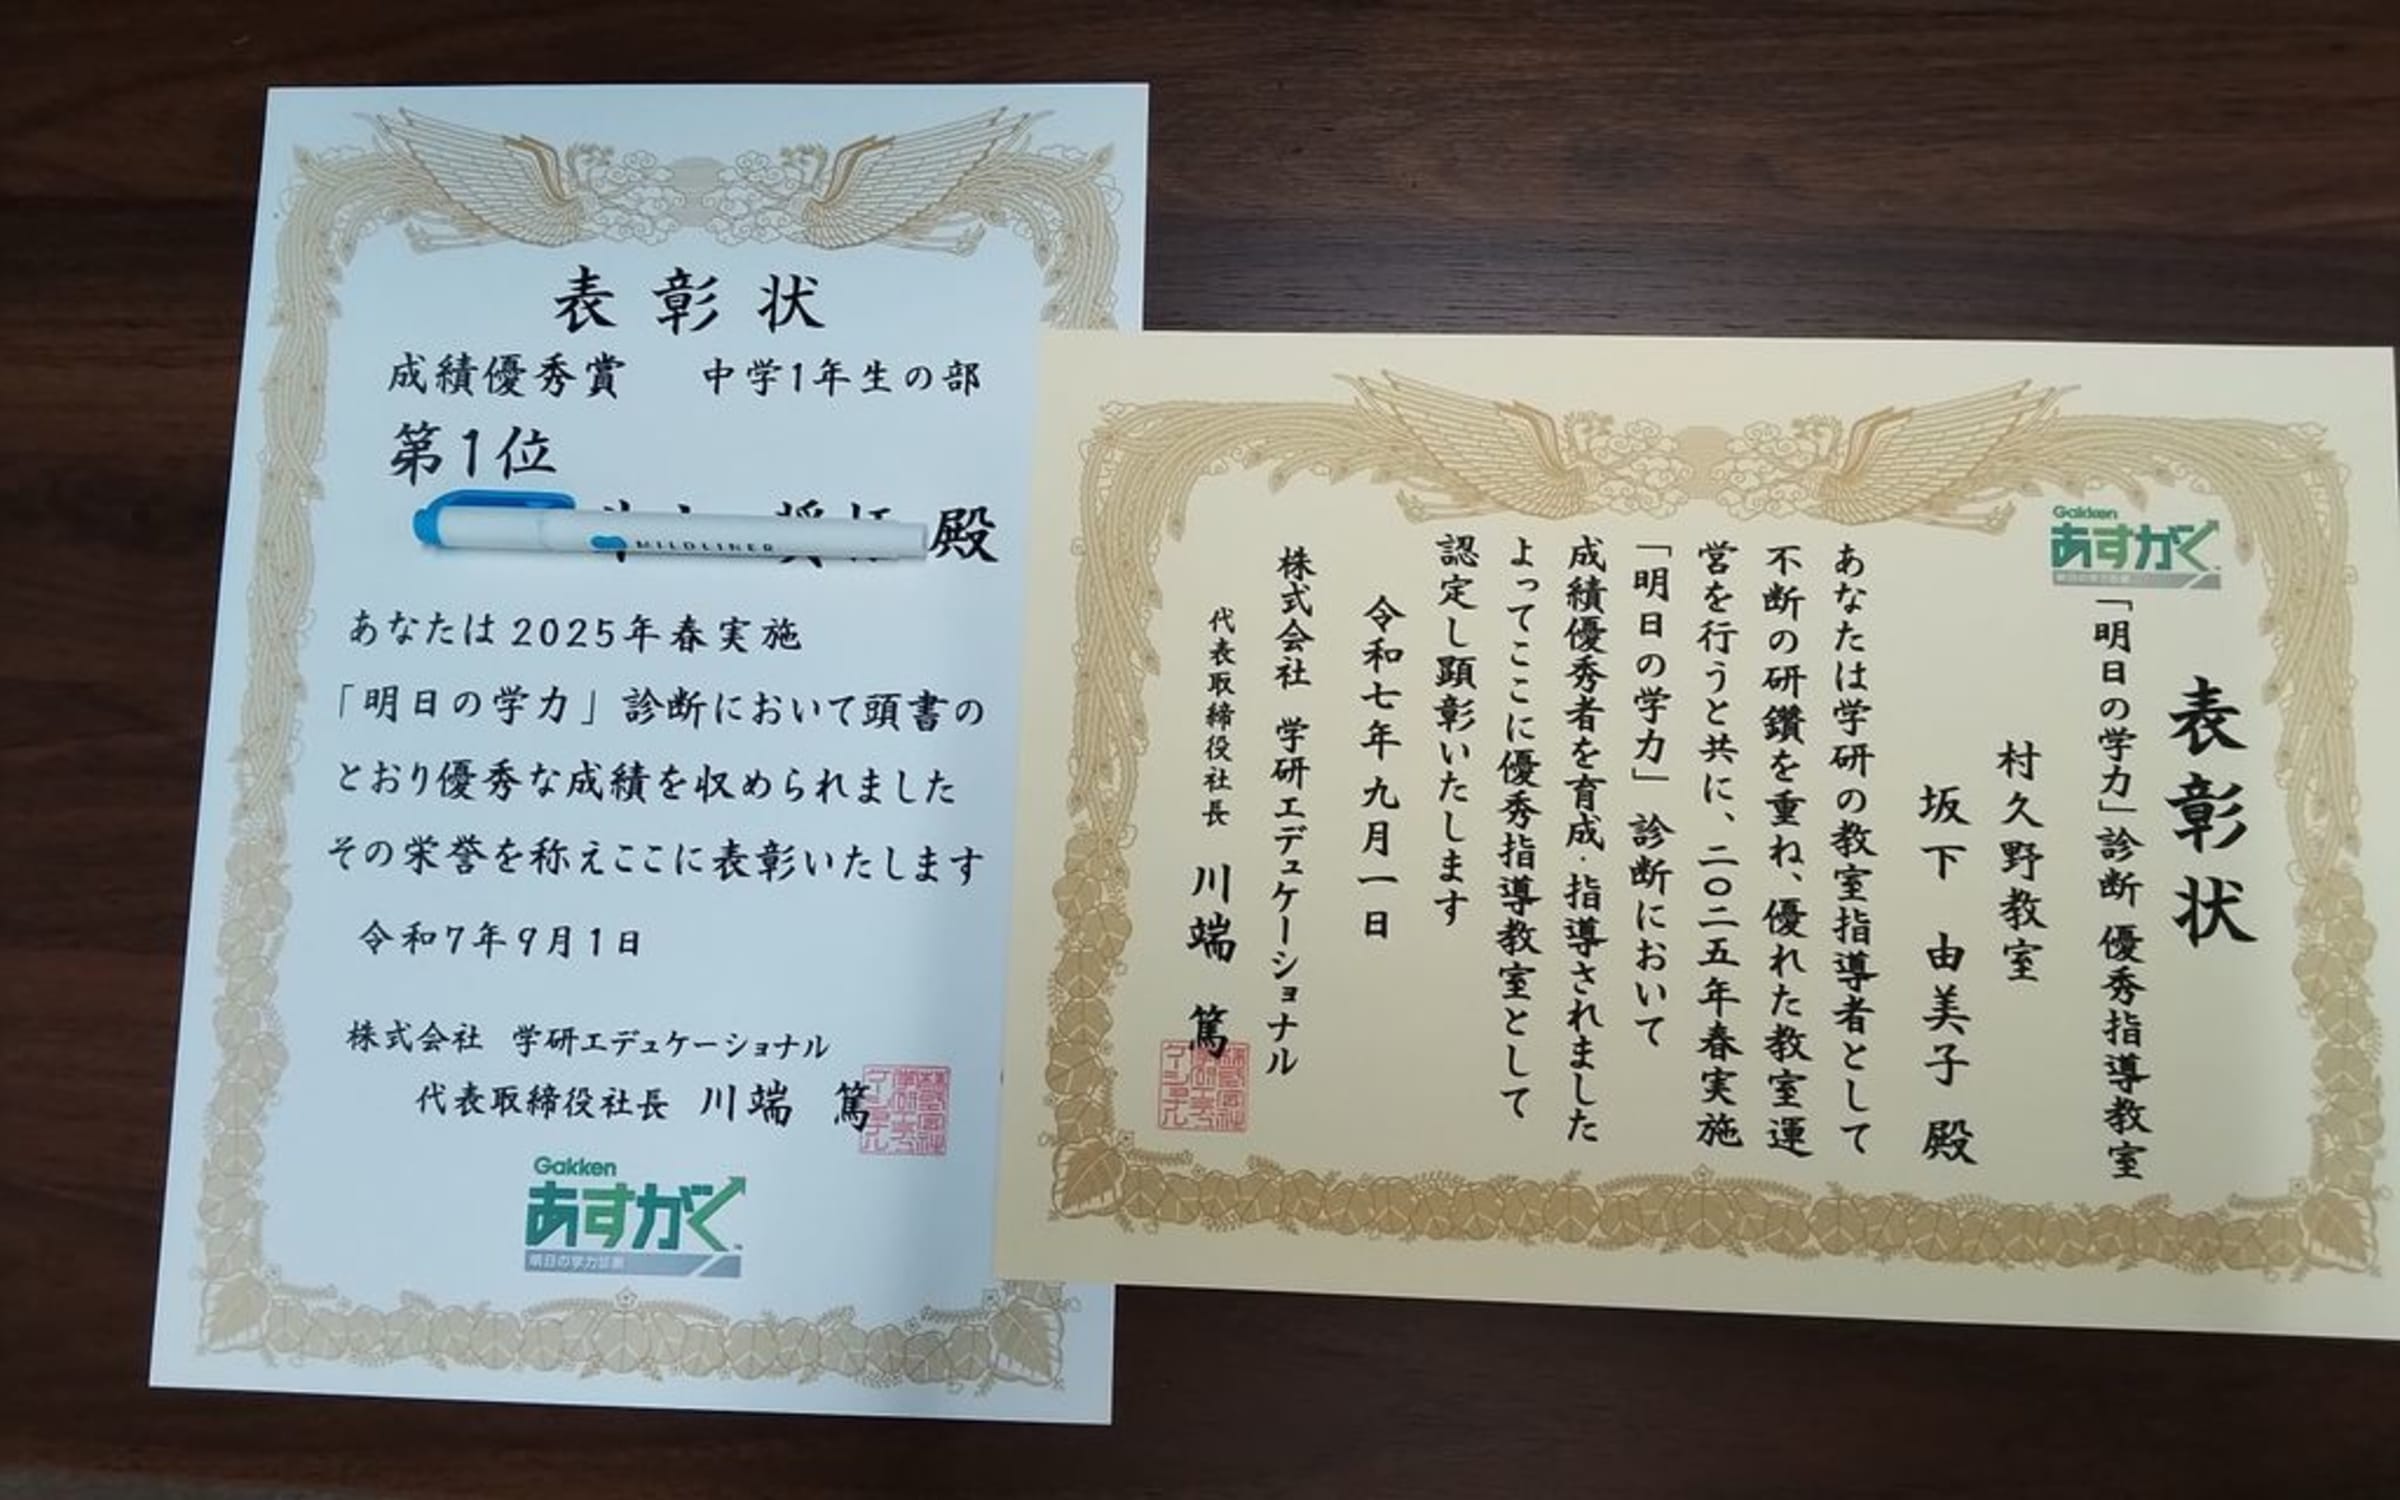 表彰状
成績優秀賞 中学1年生の部
第1位
殿
MILDLINER
あなたは2025年春実施
「明日の学力」診断において頭書の
とおり優秀な成績を収められました
その栄誉を称えここに表彰いたします
令和7年9月1日
株式会社 学研エデュケーショナル
代表取締役社長 川端 篤
Gakken
あすがく
明日の学力診断
Gakken
あすがく
明日の学力診断
表彰状
「明日の学力」診断 優秀指導教室
村久野教室
坂下 由美子 殿
あなたは学研の教室指導者として
不断の研鑽を重ね、優れた教室運
営を行うと共に、二〇二五年春実施
「明日の学力」診断において
成績優秀者を育成・指導されました
よってここに優秀指導教室として
認定し顕彰いたします
令和七年九月一日
株式会社 学研エデュケーショナル
代表取締役社長 川端 篤